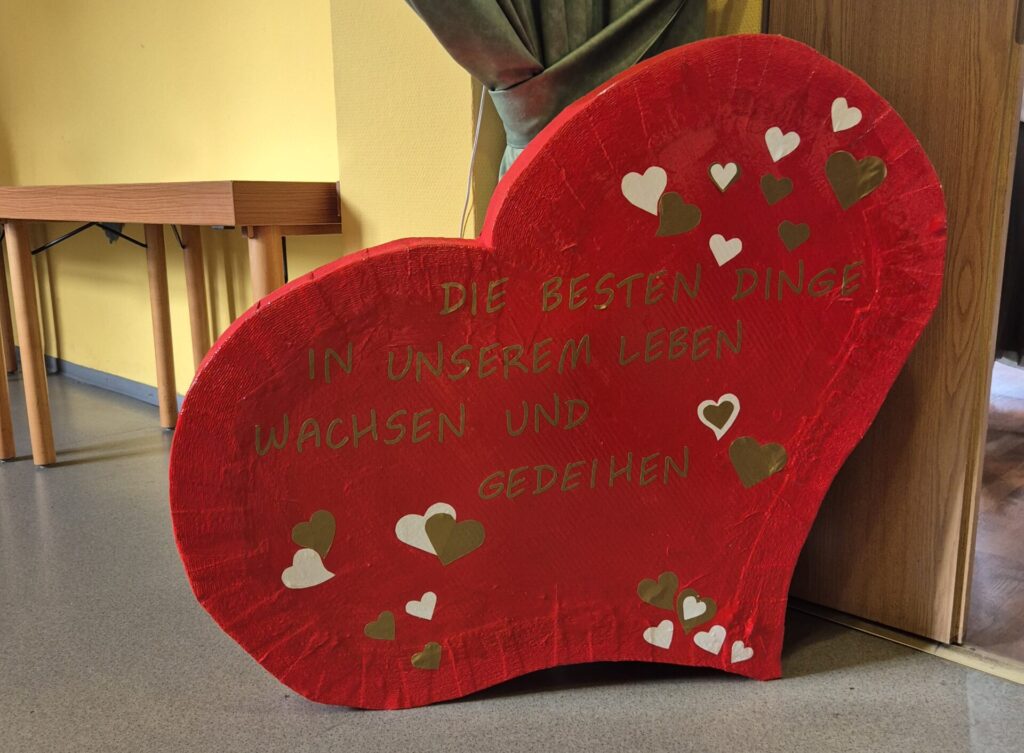 DIE BESTEN DINGE
IN UNSEREM LEBEN
WACHSEN UND
GEDEIHEN